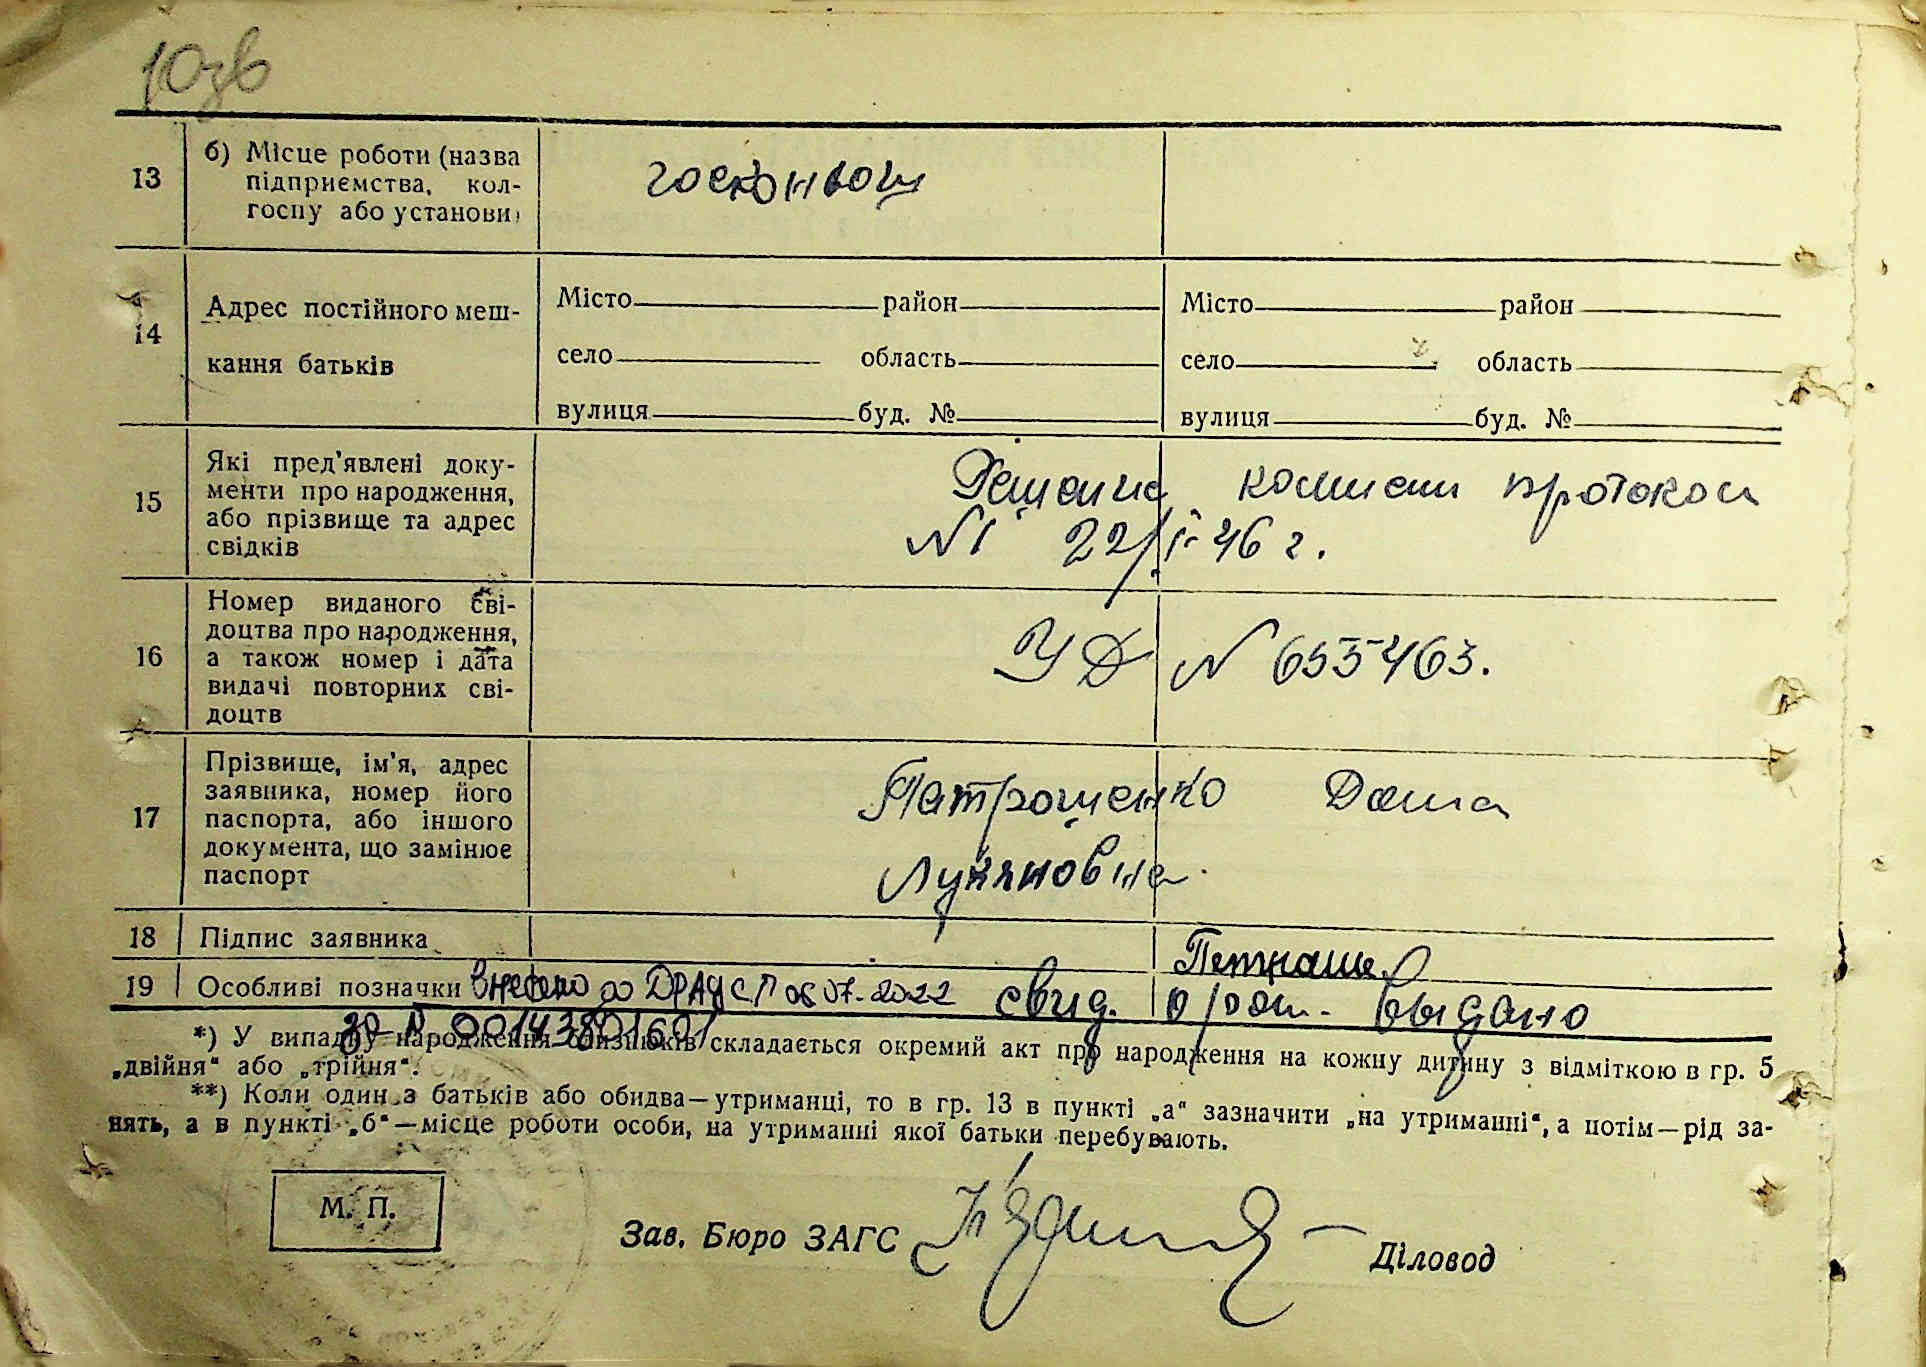 10зв
13 б) Місце роботи (назва підприємства, колгоспу або установи)
госконюш
14 Адрес постійного мешкання батьків
Місто район Місто район
село область село область
вулиця буд. № вулиця буд. №
15 Які пред'явлені документи про народження, або прізвище та адрес свідків
Решение комисии протокол
N1 22/I-46 г.
16 Номер виданого свідоцтва про народження, а також номер і дата видачі повторних свідоцтв
УД N 655463.
17 Прізвище, ім'я, адрес заявника, номер його паспорта, або іншого документа, що замінює паспорт
Патрошенко Даша
Лукяновна.
18 Підпис заявника
19 Особливі позначки внесено до ДРАЦСГ 06 07.2022 свид. о рож. выдано
за № 00143801601
*) У випадку народження близнюків складається окремий акт про народження на кожну дитину з відміткою в гр. 5
„двійня“ або „трійня“.
**) Коли один з батьків або обидва—утриманці, то в гр. 13 в пункті „а“ зазначити „на утриманні“, а потім—рід за-
нять, а в пункті „б“—місце роботи особи, на утриманні якої батьки перебувають.
М. П.
Зав. Бюро ЗАГС Діловод